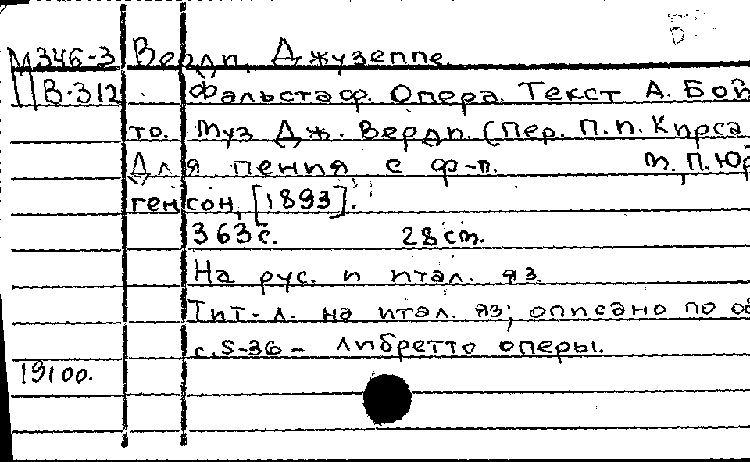 М346-3 Верди, Джузеппе.
В-312 Фальстаф. Опера. Текст А. Бой
то. Муз Дж. Верди. (Пер. П.П. Кирса
Для пения с ф-п. М., П. Юр
генсон, [1893].
363с. 28см.
На рус. и итал. яз.
Тит-л. на итал. яз; описано по об
с. 5-36 - либретто оперы.
19100.